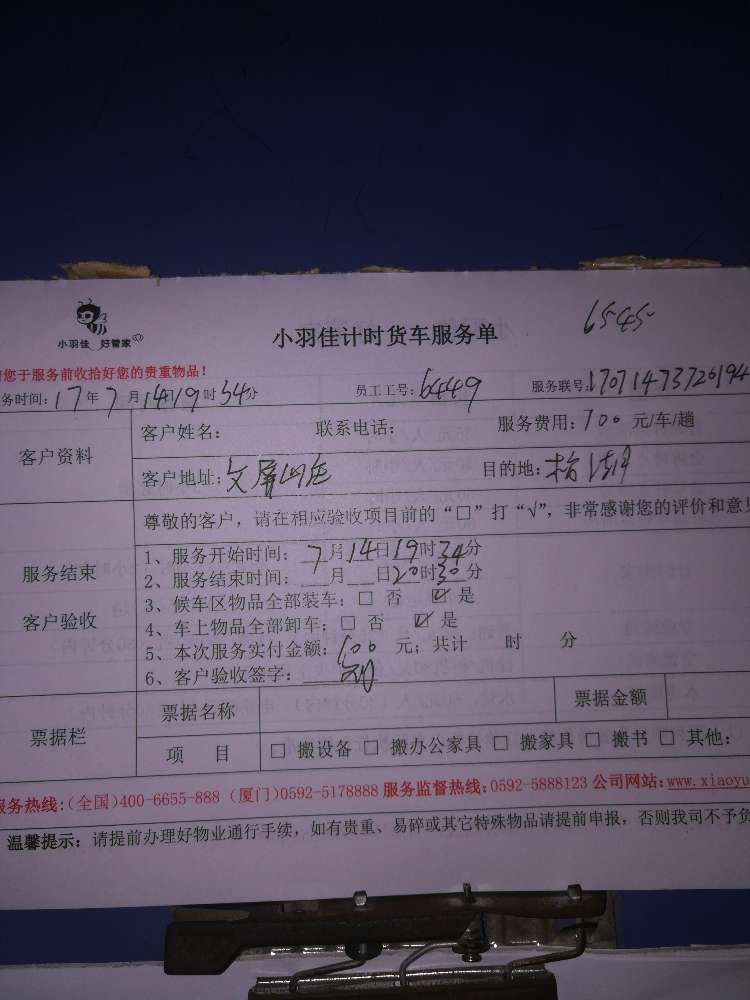 6545
小羽佳 好管家
小羽佳计时货车服务单
您于服务前收拾好您的贵重物品！
务时间：17年7月14日19时34分 员工工号：6449 服务联号：17071473720194
客户资料
客户姓名： 联系电话： 服务费用：100 元/车/趟
客户地址：文屏山庄 目的地：
尊敬的客户，请在相应验收项目前的“□”打“√”，非常感谢您的评价和意
服务结束
客户验收
1、服务开始时间：7月14日19时34分
2、服务结束时间：＿月＿日20时30分
3、候车区物品全部装车：□ 否 ☑ 是
4、车上物品全部卸车：□ 否 ☑ 是
5、本次服务实付金额：100 元；共计 时 分
6、客户验收签字：
票据栏
票据名称 票据金额
项 目 □ 搬设备 □ 搬办公家具 □ 搬家具 □ 搬书 □ 其他：
服务热线：(全国)400-6655-888 (厦门)0592-5178888 服务监督热线：0592-5888123 公司网站：www.xiaoyu
温馨提示：请提前办理好物业通行手续，如有贵重、易碎或其它特殊物品请提前申报，否则我司不予负